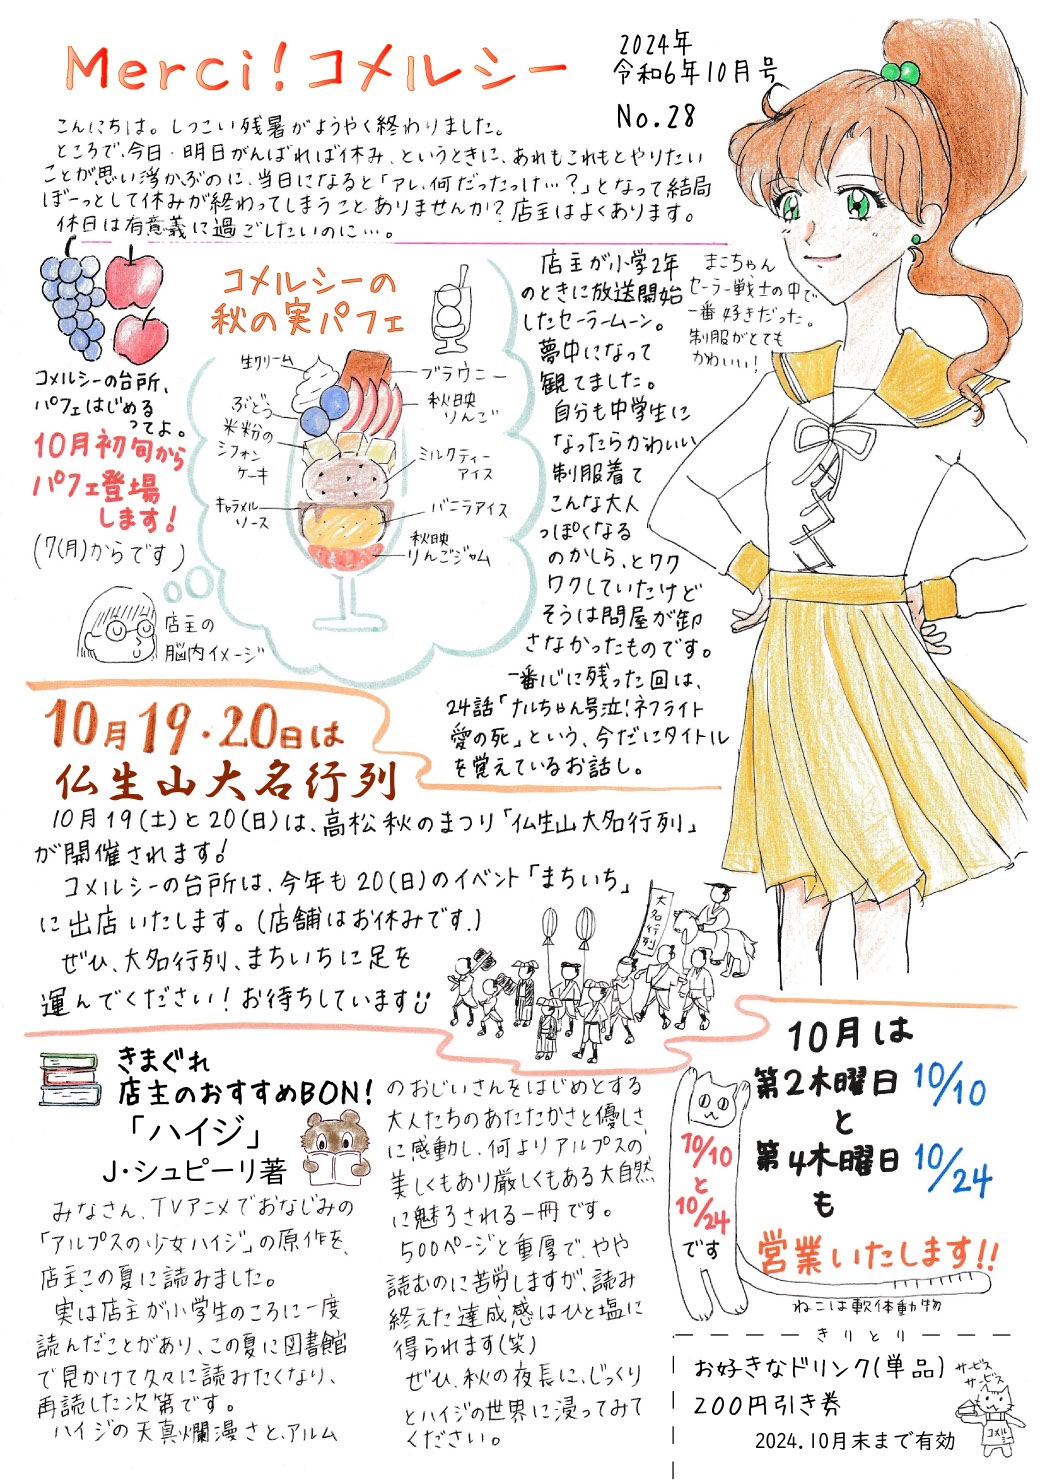 Merci！コメルシー
2024年
令和6年10月号
No.28
こんにちは。しつこい残暑がようやく終わりました。
ところで、今日・明日がんばれば休み、というときに、あれもこれもとやりたい
ことが思い浮かぶのに、当日になると「アレ、何だったっけ…？」となって結局
ぼーっとして休みが終わってしまうことありませんか？店主はよくあります。
休日は有意義に過ごしたいのに…。
コメルシーの台所、
パフェはじめる
ってよ。
10月初旬から
パフェ登場
します！
(7(月)からです)
コメルシーの
秋の実パフェ
生クリーム
ぶどう
米粉の
シフォン
ケーキ
キャラメル
ソース
ブラウニー
秋映
りんご
ミルクティー
アイス
バニラアイス
秋映
りんごジャム
店主の
脳内イメージ
店主が小学2年
のときに放送開始
したセーラームーン。
夢中になって
観てました。
自分も中学生に
なったらかわいい
制服着て
こんな大人
っぽくなる
のかしら、とワク
ワクしていたけど
そうは問屋が卸
さなかったものです。
一番心に残った回は、
24話「ナルちゃん号泣！ネフライト
愛の死」という、今だにタイトル
を覚えているお話し。
まこちゃん
セーラー戦士の中で
一番好きだった。
制服がとても
かわいい！
10月19・20日は
仏生山大名行列
10月19(土)と20(日)は、高松秋のまつり「仏生山大名行列」
が開催されます！
コメルシーの台所は、今年も20(日)のイベント「まちいち」
に出店いたします。(店舗はお休みです.)
ぜひ、大名行列、まちいちに足を
運んでください！お待ちしています
大名行列
きまぐれ
店主のおすすめBON！
「ハイジ」
J・シュピーリ著
みなさん、TVアニメでおなじみの
「アルプスの少女ハイジ」の原作を、
店主この夏に読みました。
実は店主が小学生のころに一度
読んだことがあり、この夏に図書館
で見かけて久々に読みたくなり、
再読した次第です。
ハイジの天真爛漫さと、アルム
のおじいさんをはじめとする
大人たちのあたたかさと優しさ
に感動し、何よりアルプスの
美しくもあり厳しくもある大自然
に魅了される一冊です。
500ページと重厚で、やや
読むのに苦労しますが、読み
終えた達成感はひと塩に
得られます(笑)
ぜひ、秋の夜長に、じっくり
とハイジの世界に浸ってみて
ください。
10/10
と
10/24
です
10月は
第2木曜日 10/10
と
第4木曜日 10/24
も
営業いたします！！
ねこは軟体動物
きりとり
お好きなドリンク(単品)
200円引き券
2024.10月末まで有効
サービス
サービス
コメル
シー